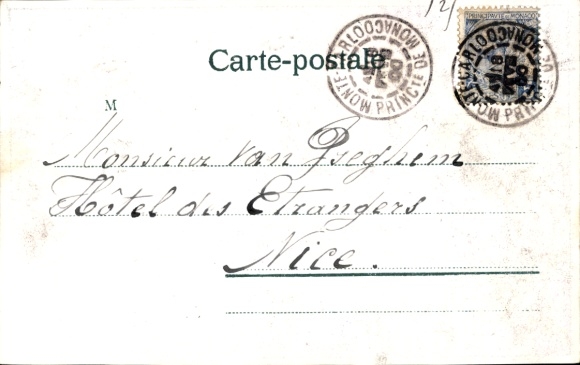 12/
PRINCIPAUTÉ DE MONACO
MONTE-CARLO PRINCTÉ DE MONACO
MONTE-CARLO PRINCTÉ DE MONACO
Carte-postale
M
Monsieur Van
Hôtel des Etrangers
Nice.